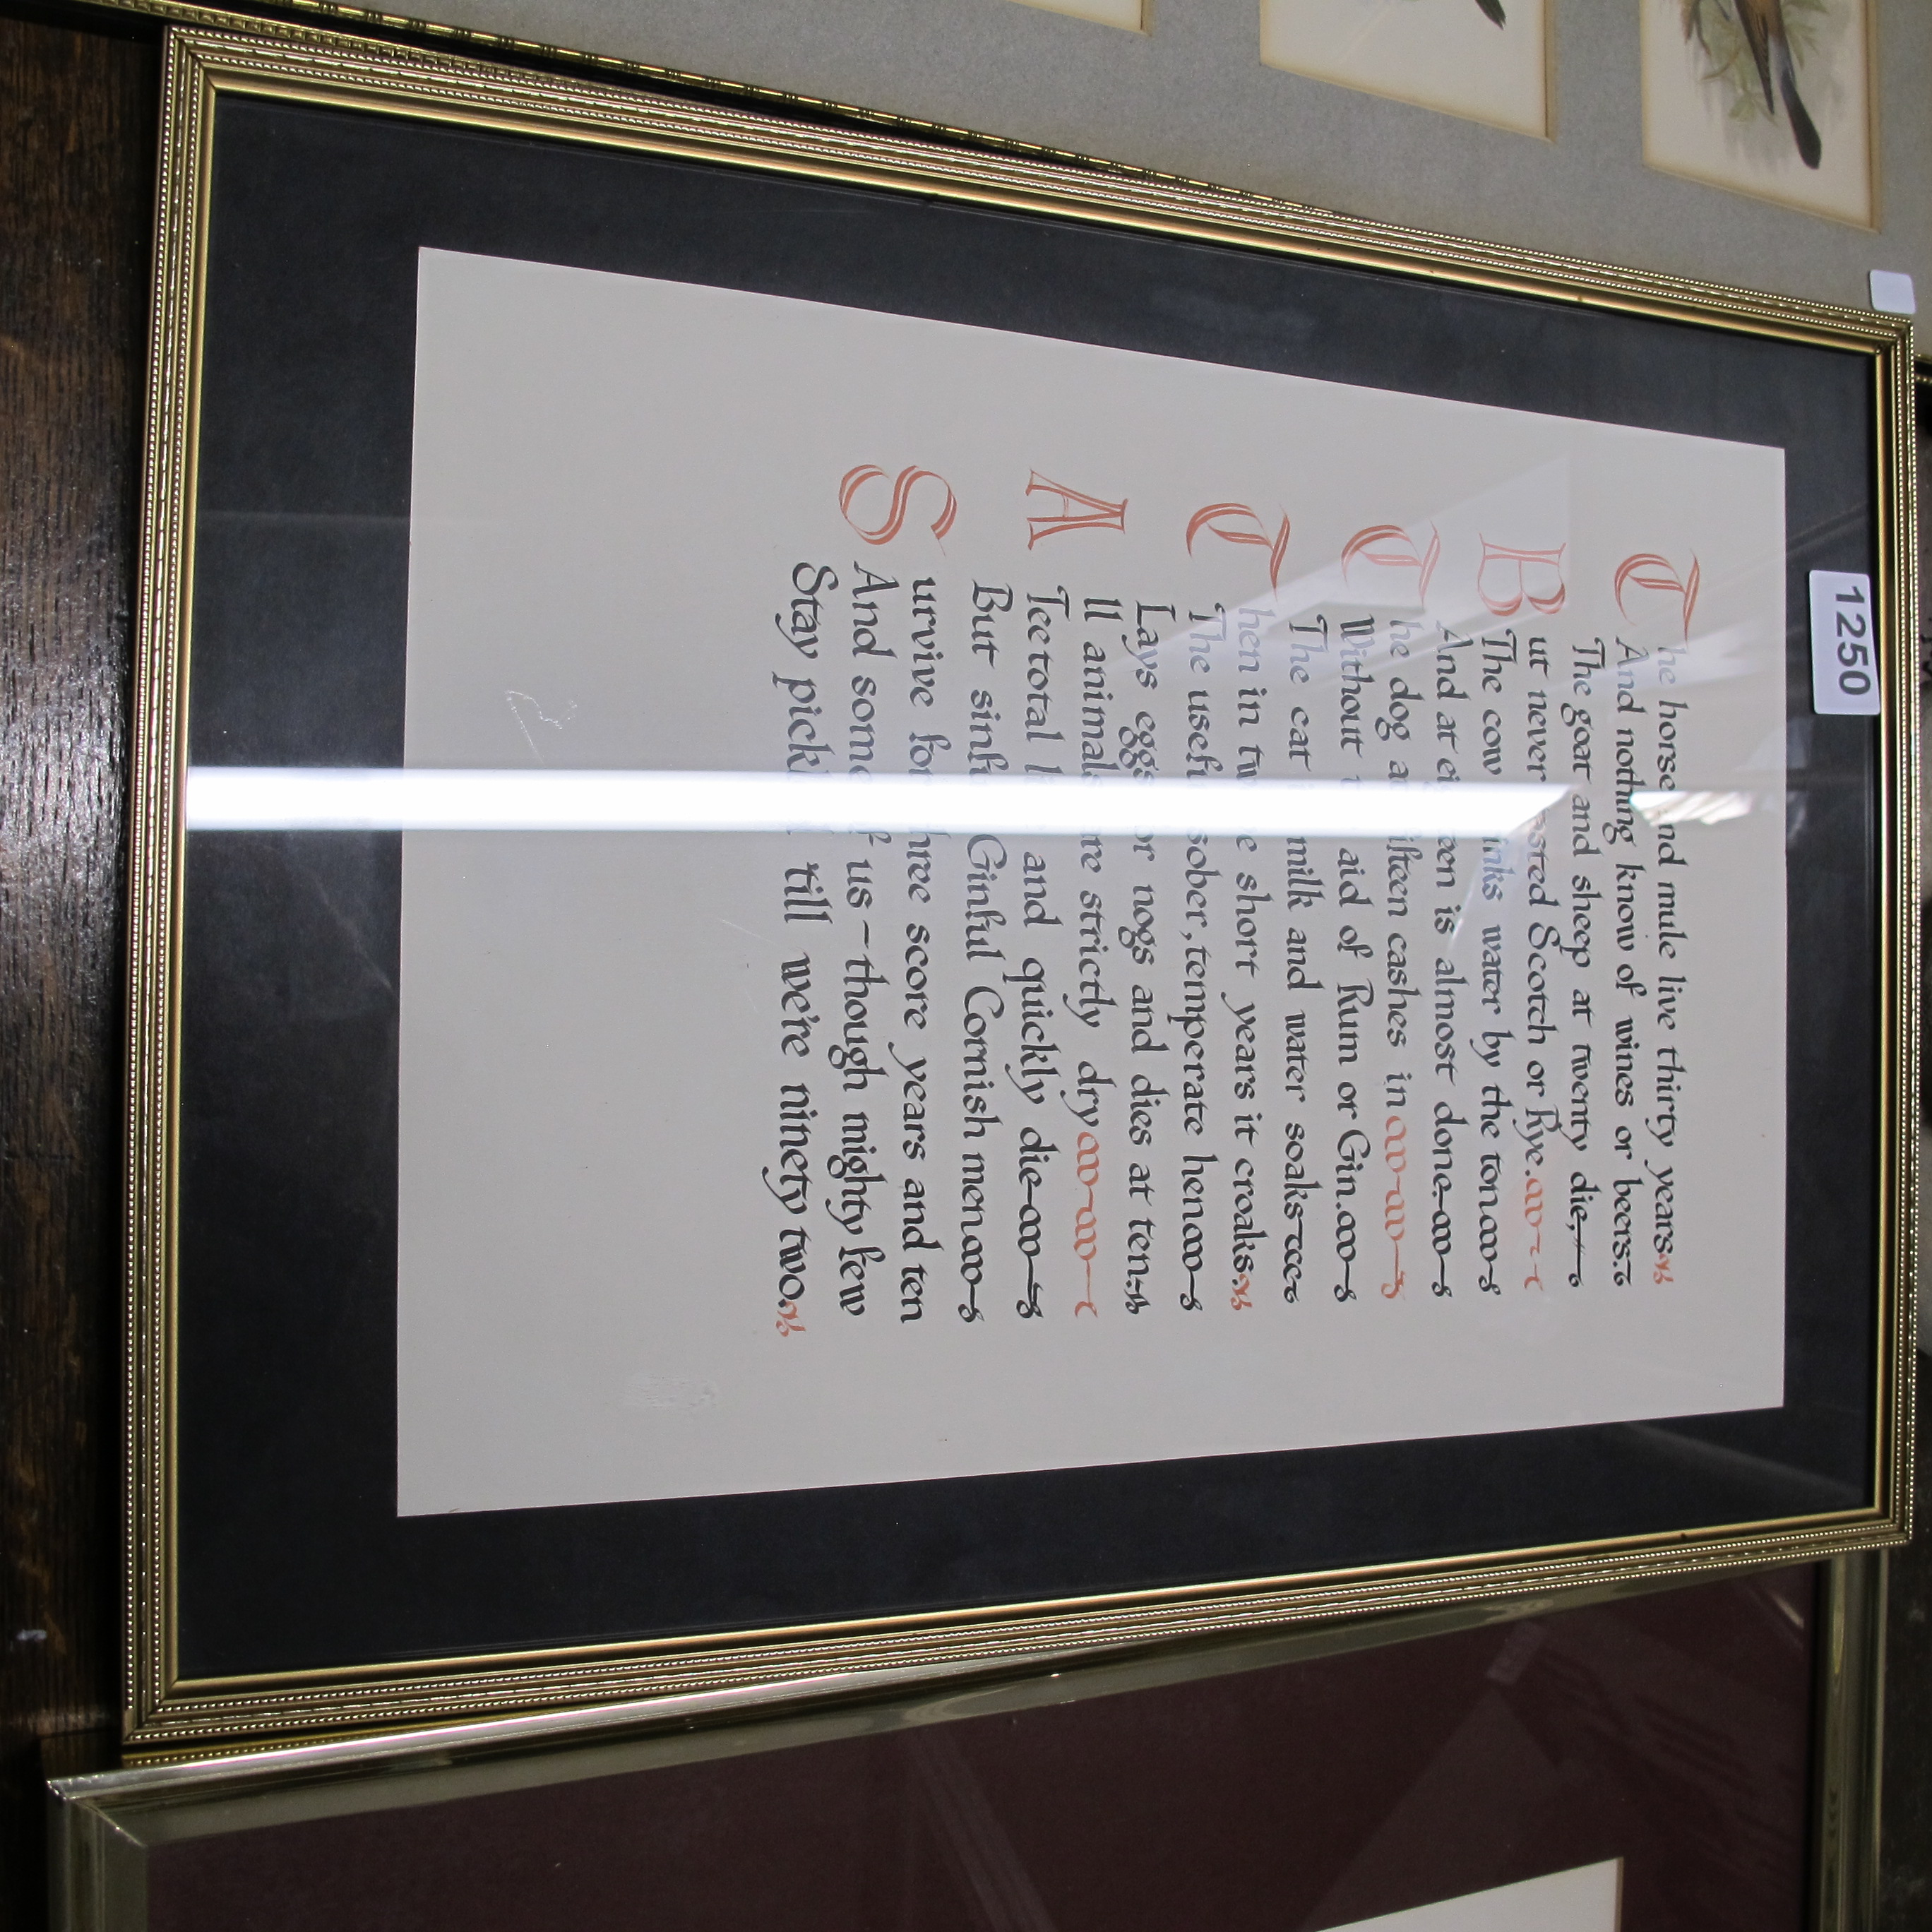 1250
The horse and mule live thirty years
And nothing know of wines or beers.
The goat and sheep at twenty die,
But never tasted Scotch or Rye.
The cow drinks water by the ton
And at eighteen is almost done.
The dog at fifteen cashes in
Without aid of Rum or Gin.
The cat milk and water soaks
Then in twelve short years it croaks.
The useful sober, temperate hen
Lays eggs for nogs and dies at ten.
All animals are strictly dry
Teetotal and quickly die
But sinful Ginful Cornish men
Survive for three score years and ten
And some of us – though mighty few
Stay pickled till we're ninety two.